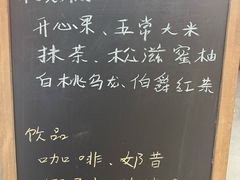 开心果、五常大米
抹茶、松滋蜜柚
白桃乌龙、伯爵红茶
饮品
咖啡、奶昔